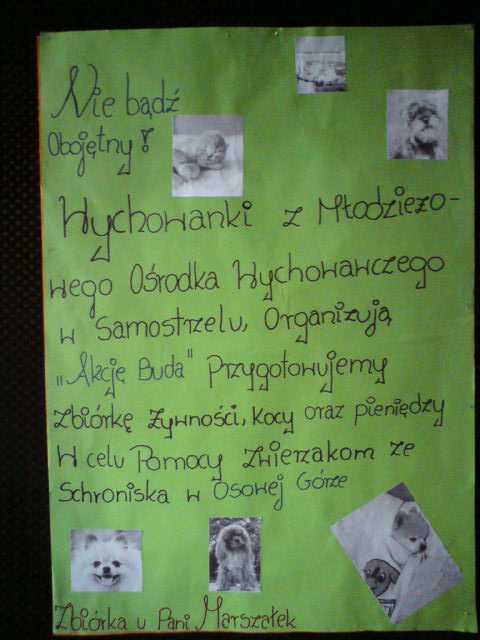 Nie bądź
Obojętny!
Wychowanki z Młodzieżo-
wego Ośrodka Wychowawczego
w Samostrzelu, Organizują
„Akcję Buda" Przygotowujemy
zbiórkę żywności, kocy oraz pieniędzy
W celu Pomocy zwierzakom ze
Schroniska w Osowej Górze
Zbiórka u Pani Marszałek